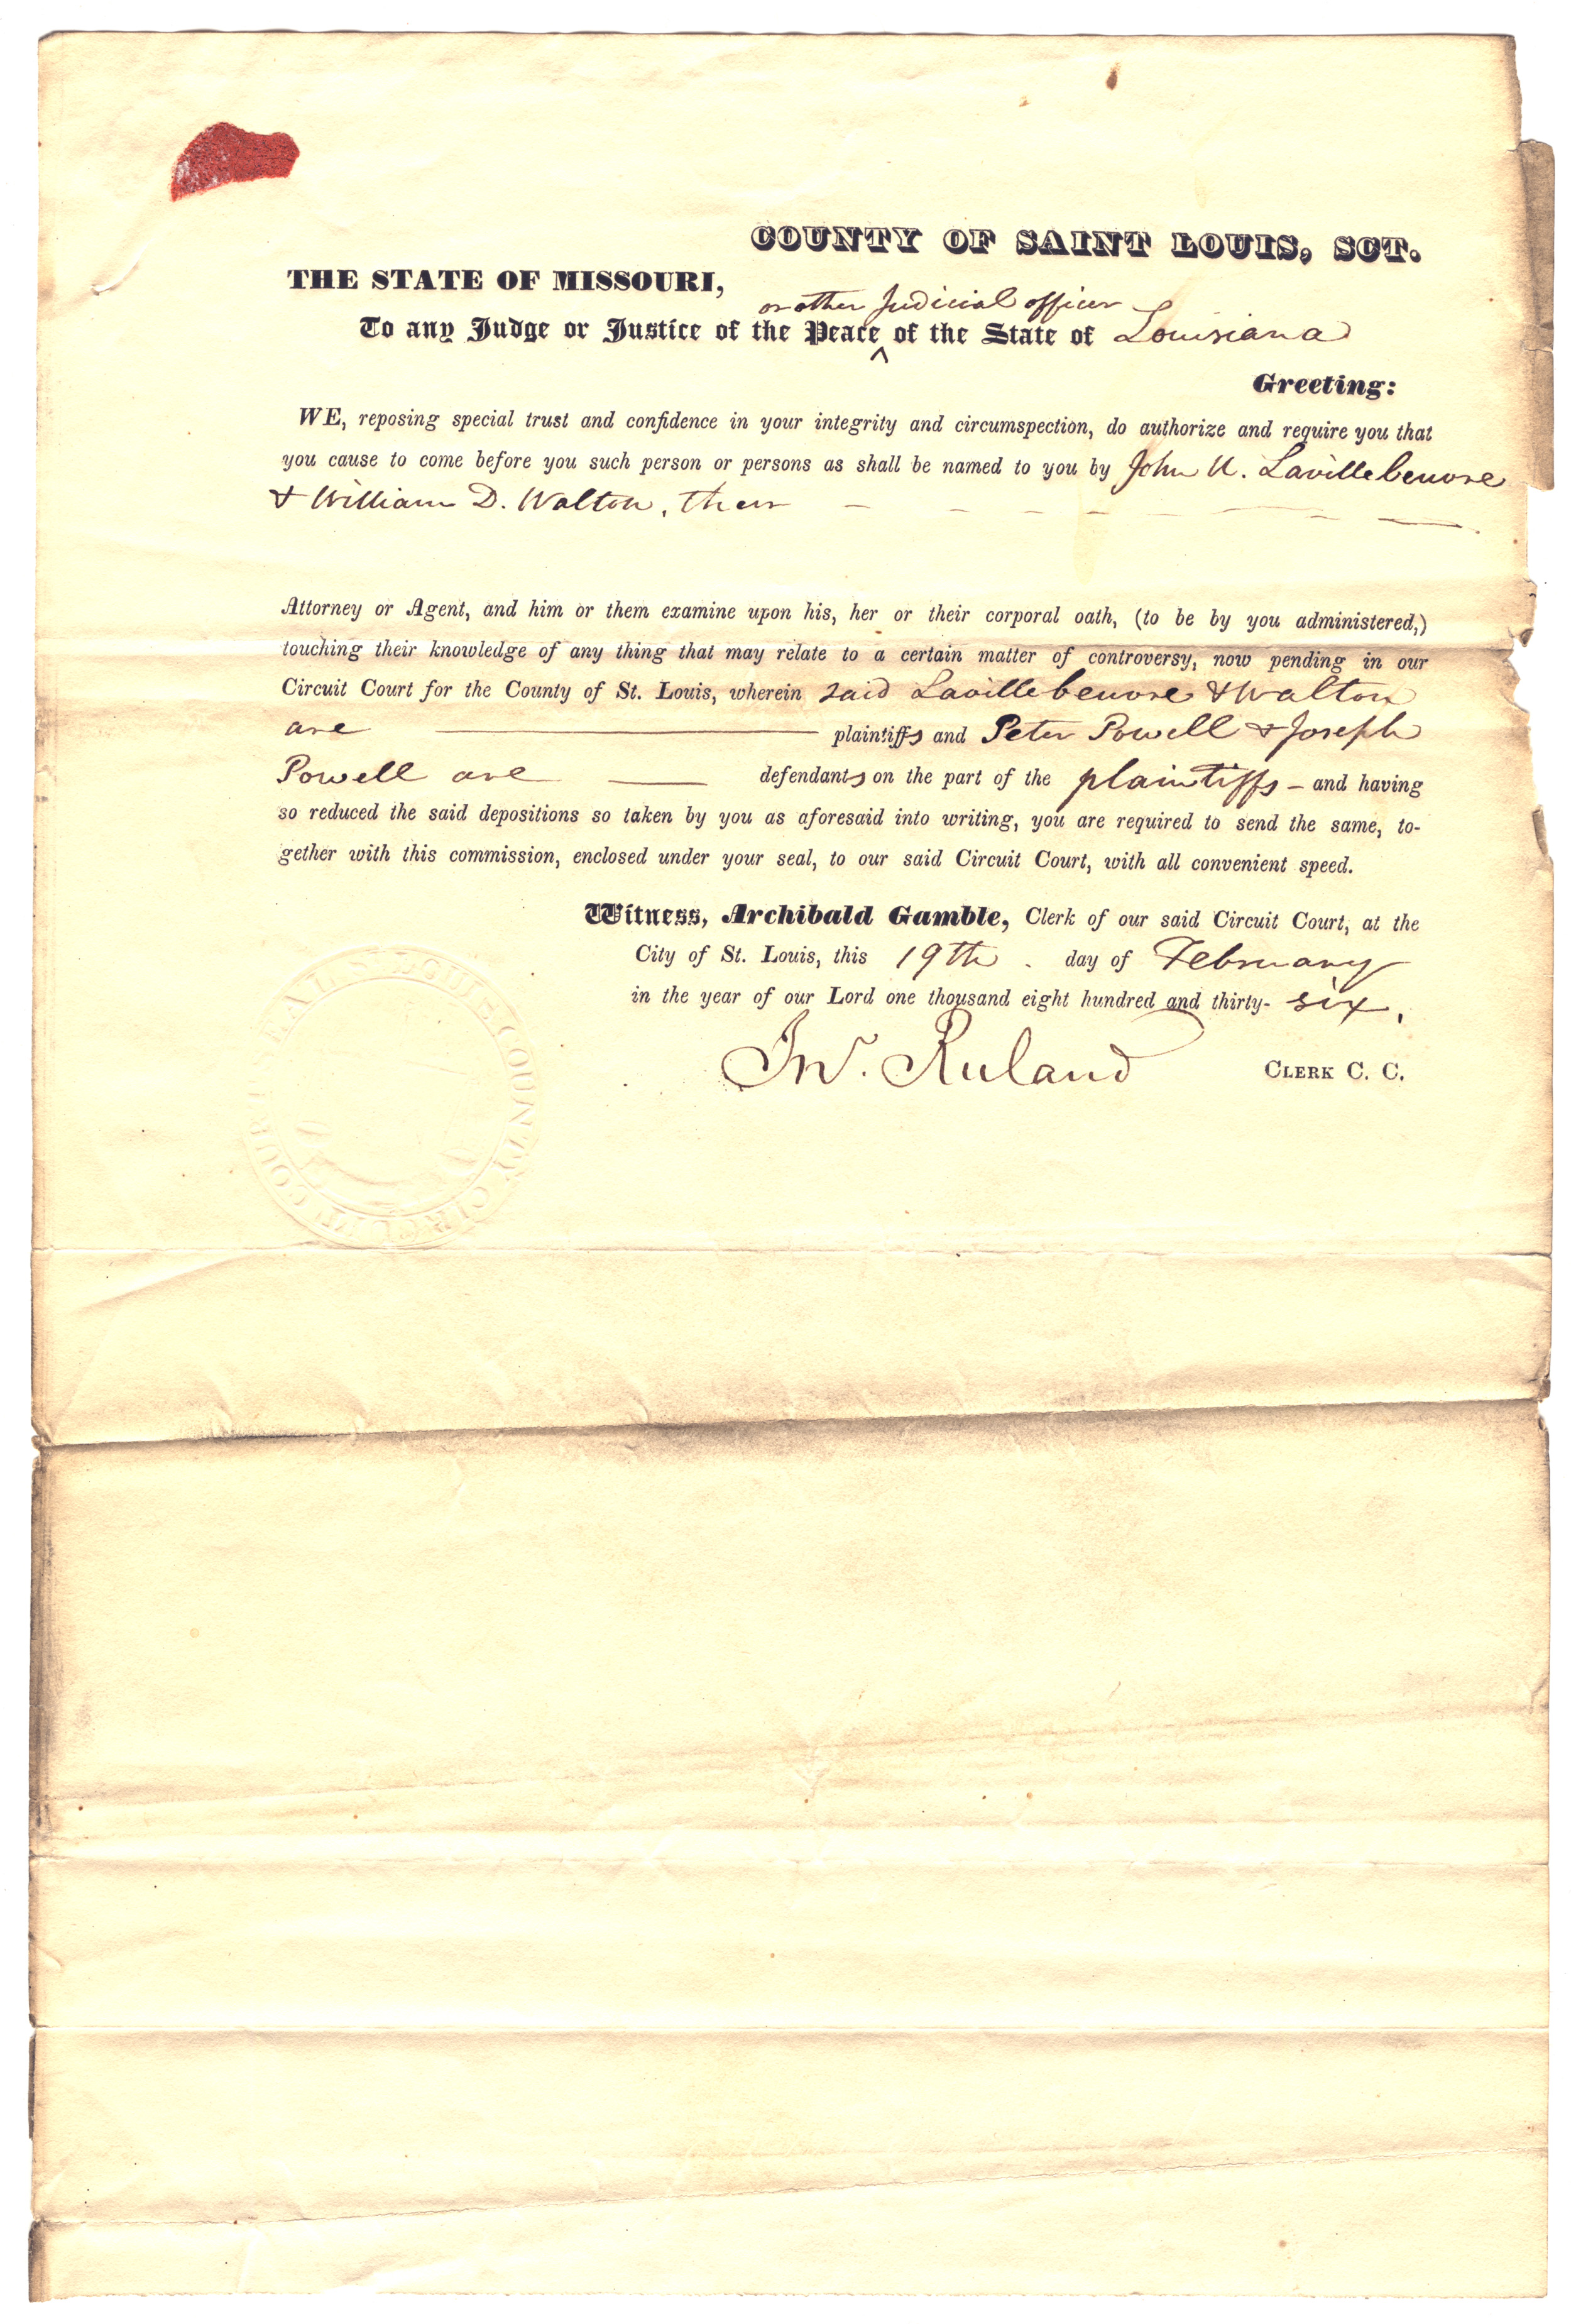 COUNTY OF SAINT LOUIS, SCT.
THE STATE OF MISSOURI,
or other Judicial officer
To any Judge or Justice of the Peace ^ of the State of Louisiana
Greeting:
WE, reposing special trust and confidence in your integrity and circumspection, do authorize and require you that
you cause to come before you such person or persons as shall be named to you by John U. Lavillebeuvre
& William D. Walton, their
Attorney or Agent, and him or them examine upon his, her or their corporal oath, (to be by you administered,)
touching their knowledge of any thing that may relate to a certain matter of controversy, now pending in our
Circuit Court for the County of St. Louis, wherein said Lavillebeuvre & Walton
are plaintiffs and Peter Powell & Joseph
Powell are defendants on the part of the plaintiffs – and having
so reduced the said depositions so taken by you as aforesaid into writing, you are required to send the same, to-
gether with this commission, enclosed under your seal, to our said Circuit Court, with all convenient speed.
Witness, Archibald Gamble, Clerk of our said Circuit Court, at the
City of St. Louis, this 19th . day of February
in the year of our Lord one thousand eight hundred and thirty- six.
Jno. Ruland CLERK C. C.
SEAL ST LOUIS COUNTY CIRCUIT COURT